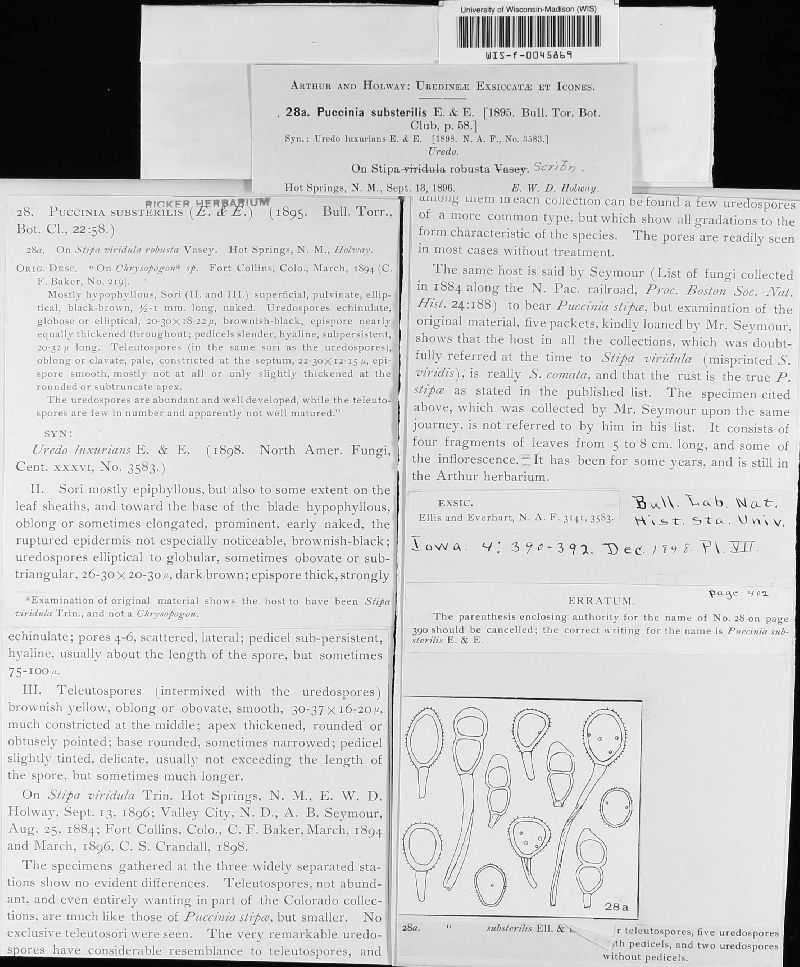 University of Wisconsin-Madison (WIS)
WIS-f-0045869
ARTHUR AND HOLWAY: UREDINEÆ EXSICCATÆ ET ICONES.
28a. Puccinia substerilis E. & E. [1895. Bull. Tor. Bot.
Club, p. 58.]
Syn.: Uredo luxurians E. & E. [1898. N. A. F., No. 3583.]
Uredo.
On Stipa viridula robusta Vasey. Scribn.
Hot Springs, N. M., Sept. 13, 1896. E. W. D. Holway.
RICKER HERBARIUM
28. PUCCINIA SUBSTERILIS (E. & E.) (1895. Bull. Torr.,
Bot. Cl., 22:58.)
28a. On Stipa viridula robusta Vasey. Hot Springs, N. M., Holway.
ORIG. DESC. "On Chrysopogon* sp. Fort Collins, Colo., March, 1894 (C.
F. Baker, No. 219).
Mostly hypophyllous, Sori (II. and III.) superficial, pulvinate, ellip-
tical, black-brown, ½-1 mm. long, naked. Uredospores echinulate,
globose or elliptical, 20-30×18-22 µ, brownish-black, epispore nearly
equally thickened throughout; pedicels slender, hyaline, subpersistent,
20-32 µ long. Teleutospores (in the same sori as the uredospores),
oblong or clavate, pale, constricted at the septum, 22-30×12-15 µ, epi-
spore smooth, mostly not at all or only slightly thickened at the
rounded or subtruncate apex.
The uredospores are abundant and well developed, while the teleuto-
spores are few in number and apparently not well matured."
SYN:
Uredo luxurians E. & E. (1898. North Amer. Fungi,
Cent. XXXVI, No. 3583.)
II. Sori mostly epiphyllous, but also to some extent on the
leaf sheaths, and toward the base of the blade hypophyllous,
oblong or sometimes elongated, prominent, early naked, the
ruptured epidermis not especially noticeable, brownish-black;
uredospores elliptical to globular, sometimes obovate or sub-
triangular, 26-30 × 20-30 µ, dark brown; epispore thick, strongly
*Examination of original material shows the host to have been Stipa
viridula Trin., and not a Chrysopogon.
echinulate; pores 4-6, scattered, lateral; pedicel sub-persistent,
hyaline, usually about the length of the spore, but sometimes
75-100 µ.
III. Teleutospores (intermixed with the uredospores)
brownish yellow, oblong or obovate, smooth, 30-37 × 16-20 µ,
much constricted at the middle; apex thickened, rounded or
obtusely pointed; base rounded, sometimes narrowed; pedicel
slightly tinted, delicate, usually not exceeding the length of
the spore, but sometimes much longer.
On Stipa viridula Trin. Hot Springs, N. M., E. W. D.
Holway, Sept. 13, 1896; Valley City, N. D., A. B. Seymour,
Aug. 25, 1884; Fort Collins, Colo., C. F. Baker, March, 1894
and March, 1896, C. S. Crandall, 1898.
The specimens gathered at the three widely separated sta-
tions show no evident differences. Teleutospores, not abund-
ant, and even entirely wanting in part of the Colorado collec-
tions, are much like those of Puccinia stipæ, but smaller. No
exclusive teleutosori were seen. The very remarkable uredo-
spores have considerable resemblance to teleutospores, and
among them in each collection can be found a few uredospores
of a more common type, but which show all gradations to the
form characteristic of the species. The pores are readily seen
in most cases without treatment.
The same host is said by Seymour (List of fungi collected
in 1884 along the N. Pac. railroad, Proc. Boston Soc. Nat.
Hist. 24:188) to bear Puccinia stipæ, but examination of the
original material, five packets, kindly loaned by Mr. Seymour,
shows that the host in all the collections, which was doubt-
fully referred at the time to Stipa viridula (misprinted S.
viridis), is really S. comata, and that the rust is the true P.
stipæ as stated in the published list. The specimen cited
above, which was collected by Mr. Seymour upon the same
journey, is not referred to by him in his list. It consists of
four fragments of leaves from 5 to 8 cm. long, and some of
the inflorescence. It has been for some years, and is still in
the Arthur herbarium.
EXSIC.
Ellis and Everhart, N. A. F. 3141, 3583.
Bull. Lab. Nat.
Hist. Sta. Univ.
Iowa. 4: 390-392. Dec. 1898. Pl. VII.
page 402
ERRATUM.
The parenthesis enclosing authority for the name of No. 28 on page
390 should be cancelled; the correct writing for the name is Puccinia sub-
sterilis E. & E.
28a
28a. " substerilis Ell. & r teleutospores, five uredospores
ith pedicels, and two uredospores
without pedicels.